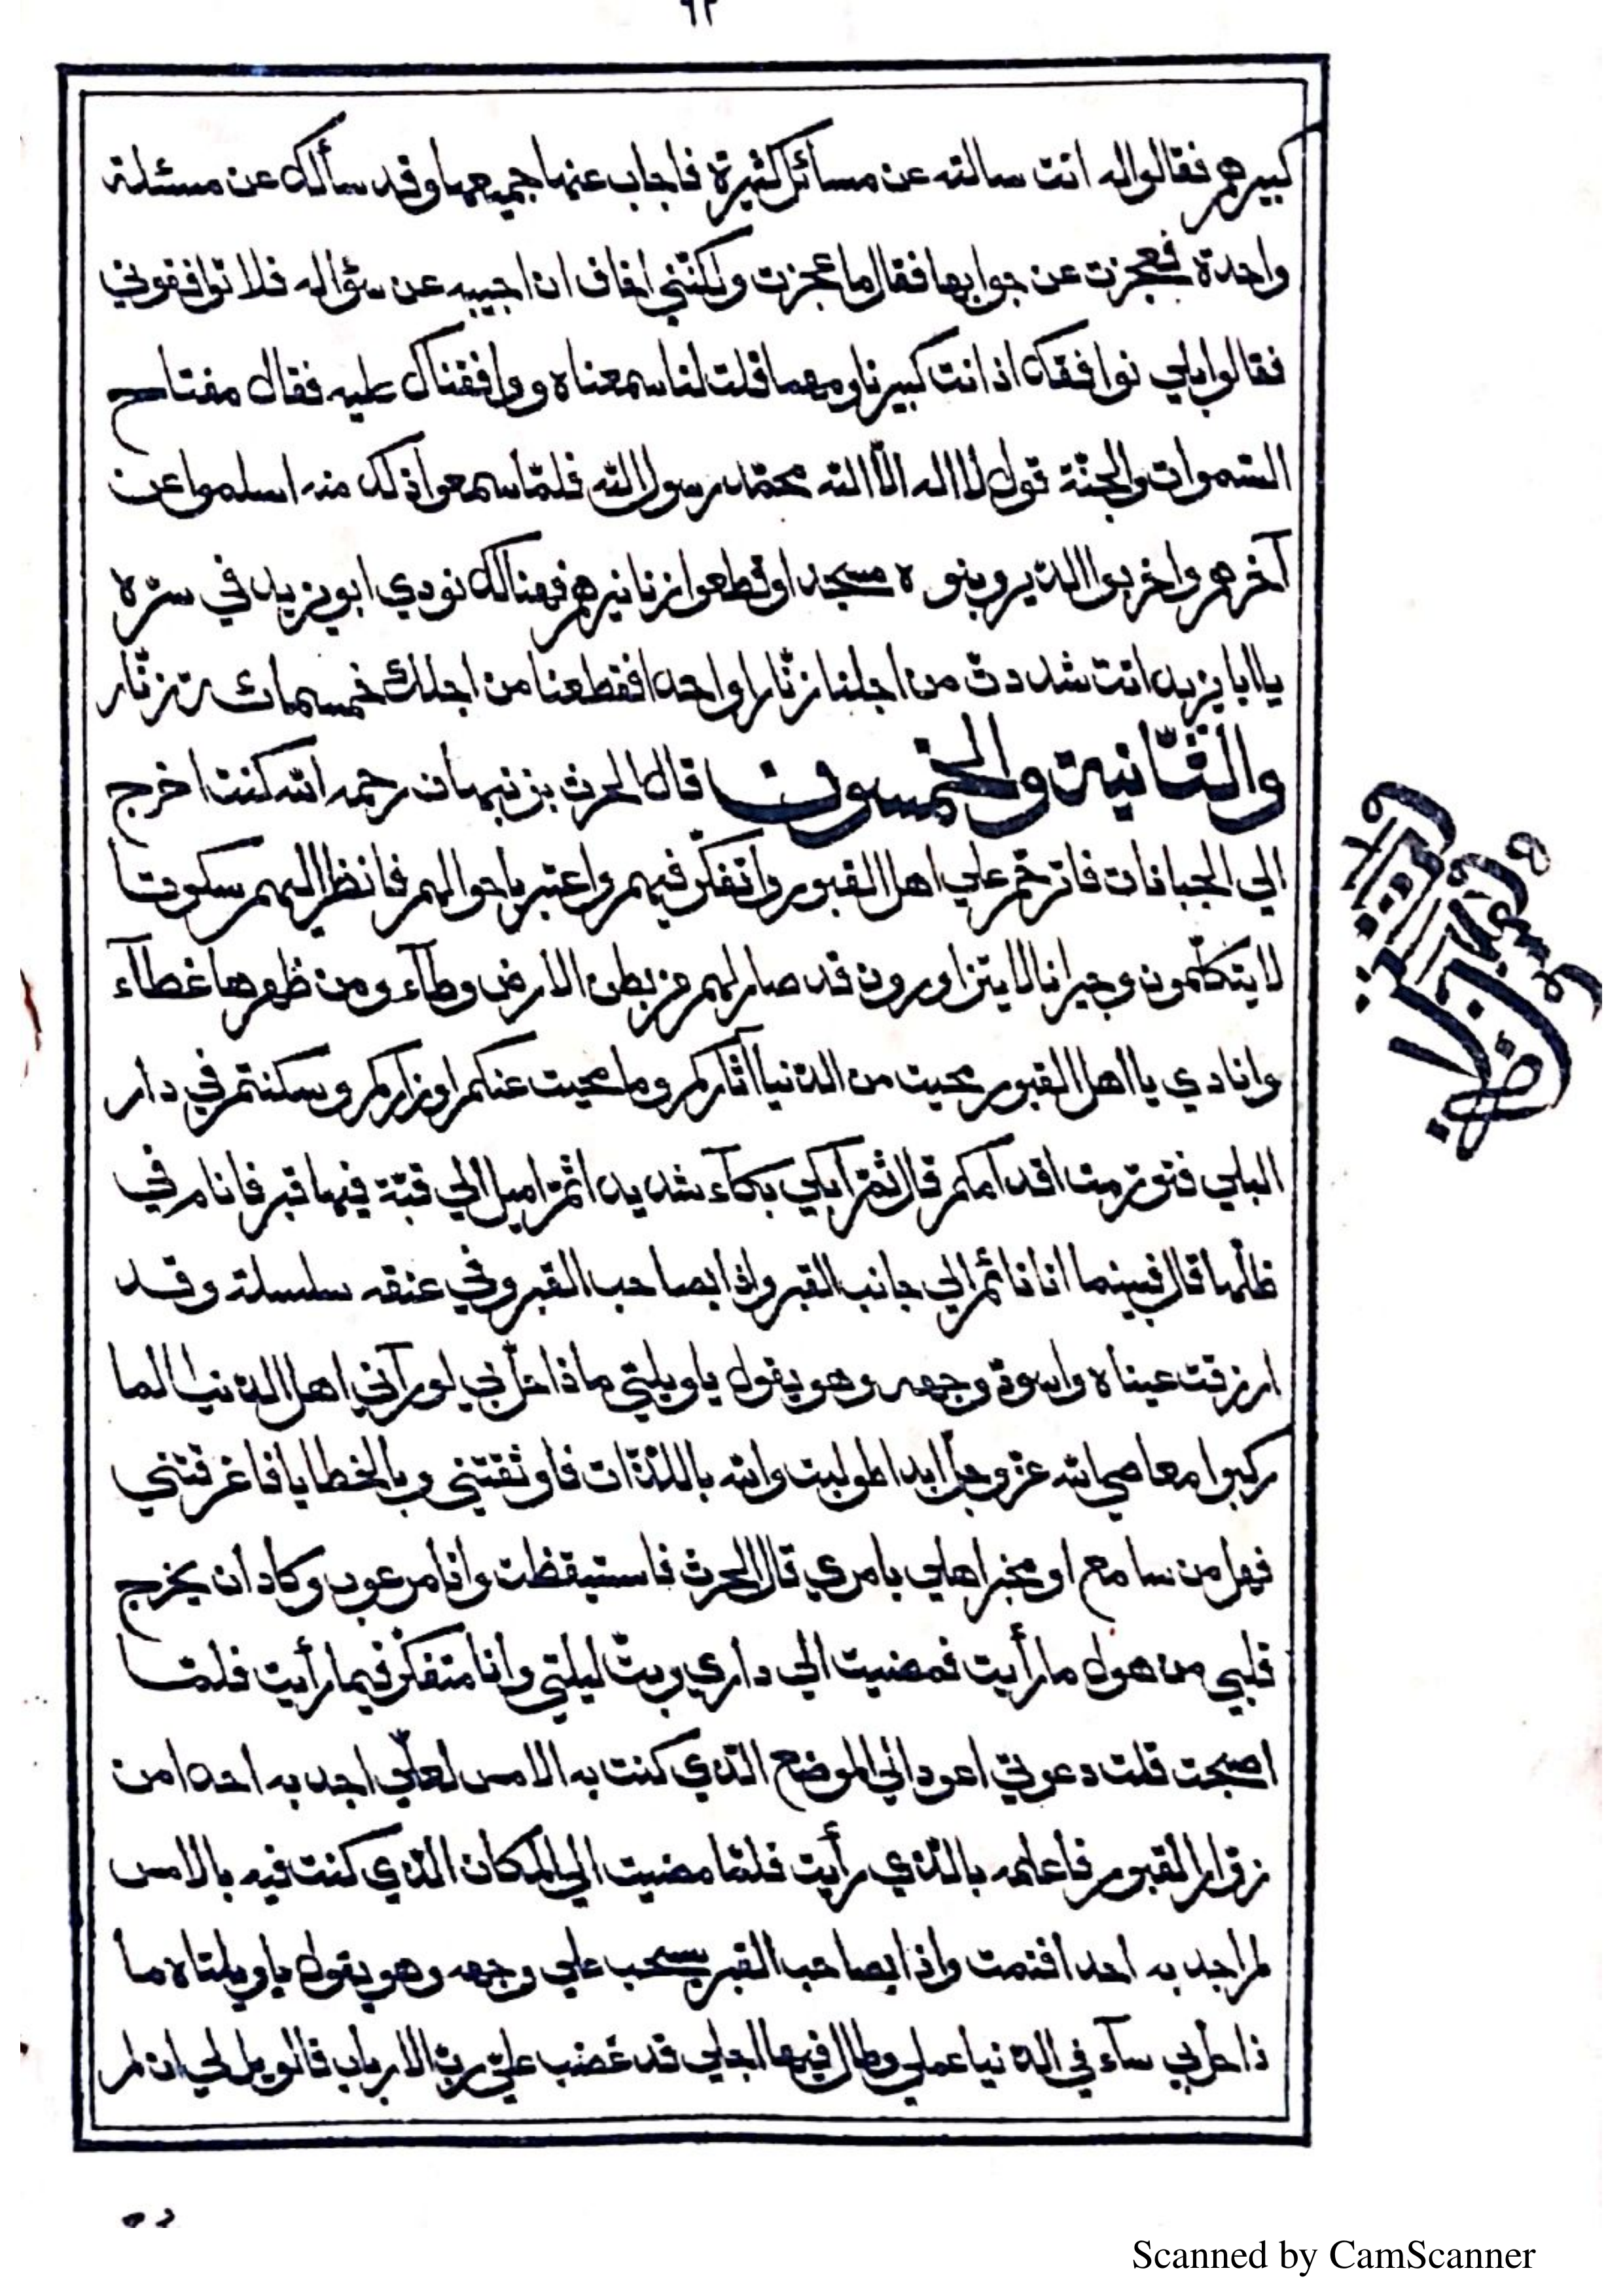 ٦٢
كبيرهم فقالوا له انت سالته عن مسائل كثيرة فاجاب عنها جميعها وقد سألك عن مسئلة
واحدة فعجزت عن جوابها فقال ما عجزت ولكنّني اخاف ان اجيبه عن سؤاله فلا توافقوني
فقالوا بلي نوافقك اذ انت كبيرنا ومهما قلت لنا سمعناه ووافقناك عليه فقال مفتاح
السّموات والجنّة قول لا اله الّا اللّه محمّد رسول اللّه فلمّا سمعوا ذلك منه اسلموا عن
آخرهم واخربوا الدّير وبنوه مسجدا وقطعوا زنانيرهم فهنالك نودي ابو يزيد في سرّه
يا ابا يزيد انت شددت من اجلنا زنّارا واحدا فقطعنا من اجلك خمسمائة زنّار
والثّانية والخمسون قال الحرث بن نبهان رحمه اللّه كنت اخرج
الي الجبانات فاترحّم علي اهل القبور واتفكّر فيهم واعتبر باحوالهم فانظر اليهم سكوتا
لا يتكلّمون وجيرانا لا يتزاورون قد صار لهم من بطن الارض وطآء ومن ظهرها غطآء
وانادي يا اهل القبور محيت من الدّنيا آثاركم وما محيت عنكم اوزاركم وسكنتم في دار
البلي فتورّمت اقدامكم قال ثمّ ابكي بكآء شديدا ثمّ اميل الي قبّة فيها قبر فانام في
ظلّها قال فبينما انا نائم الي جانب القبر واذا بصاحب القبر وفي عنقه سلسلة وقد
ازرقت عيناه واسودّ وجهه وهو يقول يا ويلتي ماذا حلّ بي لو رآني اهل الدّنيا لما
ركبوا معاصي اللّه عزّ وجلّ ابدا طولبت واللّه باللّذّات فاوثقتني وبالخطايا فاغرقتني
فهل من سامع او مخبر اهلي بامري قال الحرث فاستيقظت وانا مرعوب وكاد ان يخرج
قلبي من هول ما رأيت فمضيت الي داري وبتّ ليلتي وانا متفكّر فيما رأيت فلمّا
اصبحت قلت دعوني اعود الي الموضع الّذي كنت به الامس لعلّي اجد به احدا من
زوّار القبور فاعلمه بالّذي رأيت فلمّا مضيت الي المكان الّذي كنت فيه بالامس
لم اجد به احدا فنمت واذا بصاحب القبر يسحب علي وجهه وهو يقول يا ويلتاه ما
ذا حلّ بي سآء في الدّنيا عملي وطال فيها اجلي قد غضب عليّ ربّ الارباب فالويل لي ان لم
Scanned by CamScanner